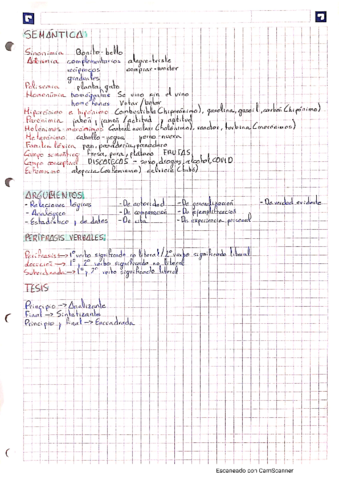 SEMÁNTICA
Sinonimia Bonito-bello
Antonimia complementarios alegre-triste
recíprocos comprar-vender
graduales
Polisemia planta, gato
Homonimia homógrafas Se vino con el vino
homófonas Votar/botar
Hiperónimo e hipónimo Combustible (hiperónimo), gasolina, gasoil, carbón (hipónimo)
Paronimia jabón, jamón / actitud, aptitud
Holónimos merónimos Central nuclear (holónimo), reactor, turbina (merónimos)
Heterónimo caballo-yegua yerno-nuera
Familia léxica pan, panadería, panadero
Campo semántico Fresa, pera, plátano FRUTAS
Campo conceptual DISCOTECAS - sexo, drogas, alcohol, COVID
Eufemismo
ARGUMENTOS
- Relaciones lógicas - De autoridad - De generalización - De verdad evidente
- Analógicos - De comparación - De ejemplificación
- Estadístico y de datos - De cita - De experiencia personal
PERÍFRASIS VERBALES
Perífrasis → 1º verbo significado no literal / 2º verbo significado literal
Locución → 1º, 2º verbo significado no literal
Subordinada → 1º, 2º verbo significado literal
TESIS
Principio → Analizante
Final → Sintetizante
Principio y final → Encuadrada
Escaneado con CamScanner